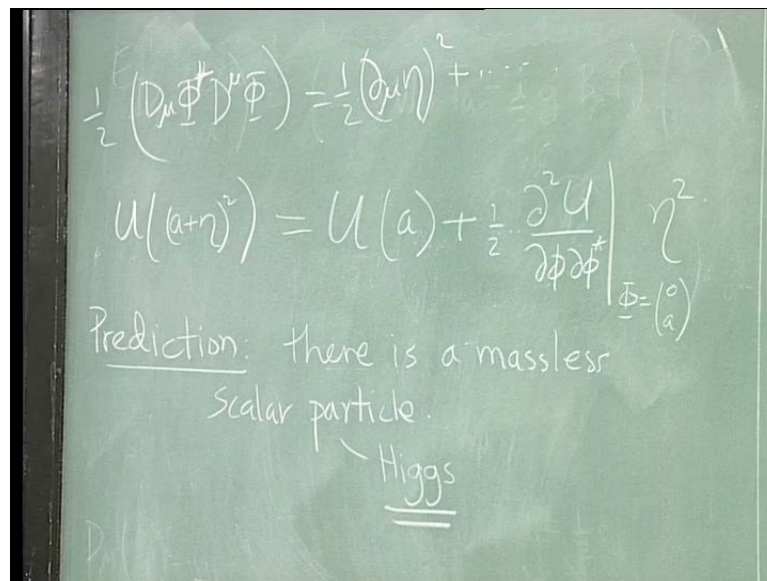 1/2 (D_μ Φ* D^μ Φ) = 1/2 (∂_μ η)² + .....
U((a+η)²) = U(a) + 1/2 ∂²U/∂ϕ∂ϕ* |_{Φ=(0 a)} η²
Prediction: there is a massless
scalar particle.
Higgs